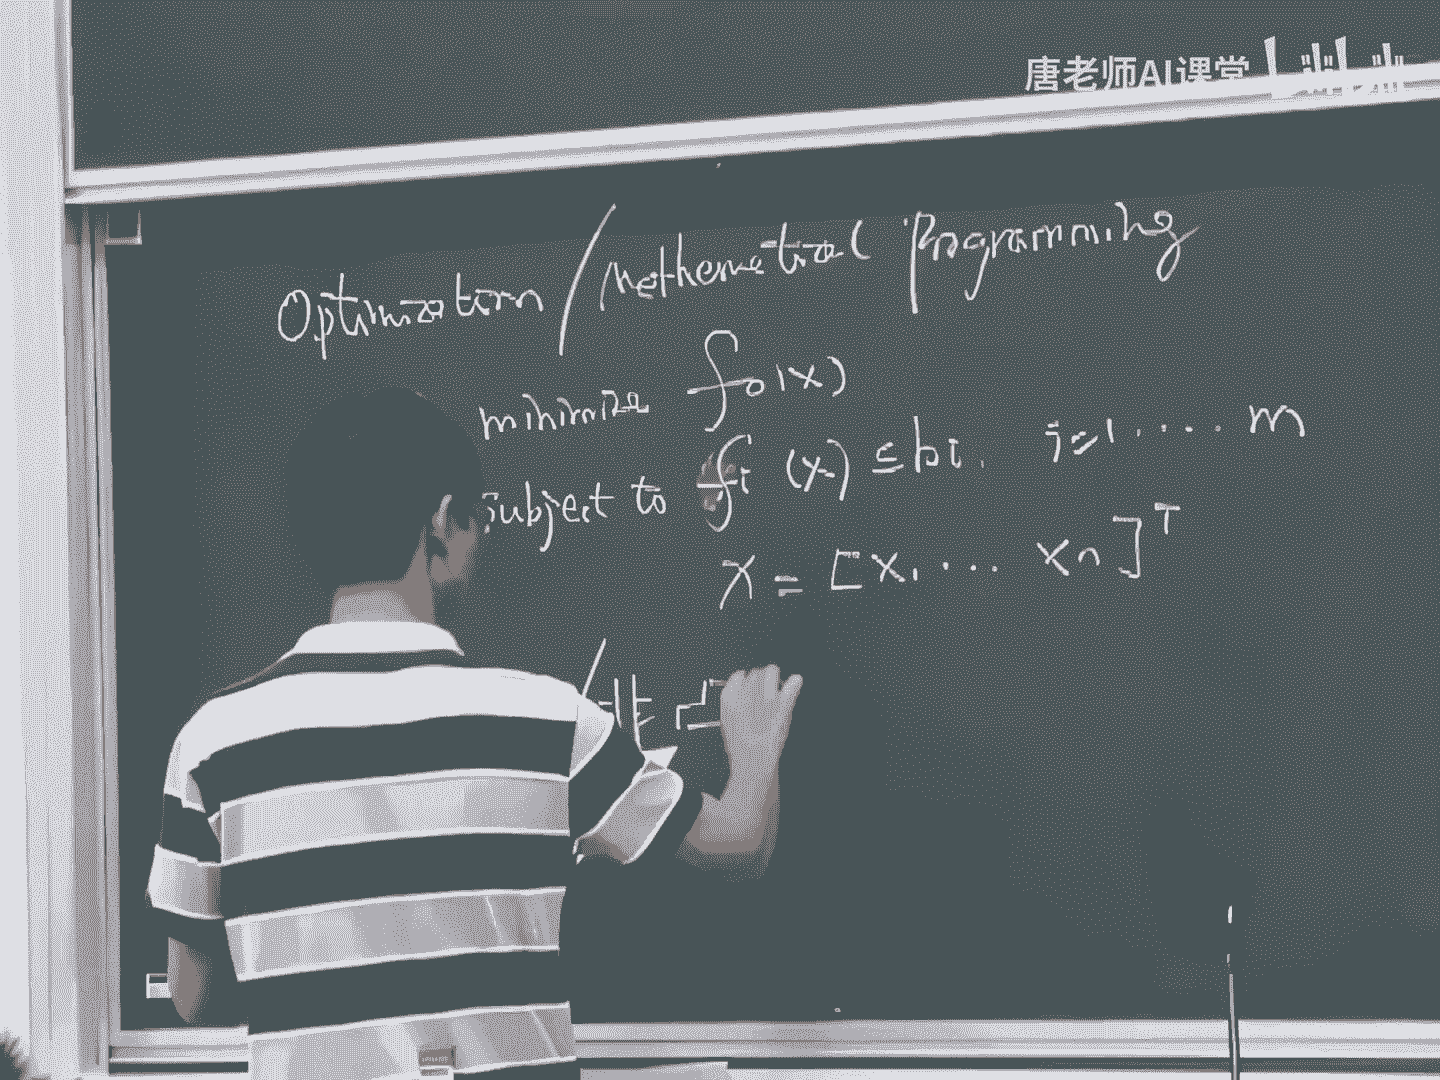 唐老师AI课堂
Optimization / Mathematical Programming
minimize f₀(x)
subject to fᵢ (x) ≤ bᵢ, i=1 .... m
X = [x₁ ... xₙ]ᵀ